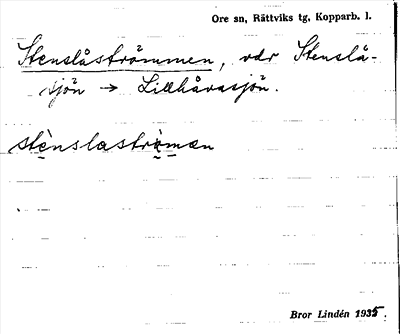 Ore sn, Rättviks tg, Kopparb. l.
Stenslåströmmen, vdr Stenslå-
sjön → Lillhårasjön.
stènslaströ̀man
Bror Lindén 1935.